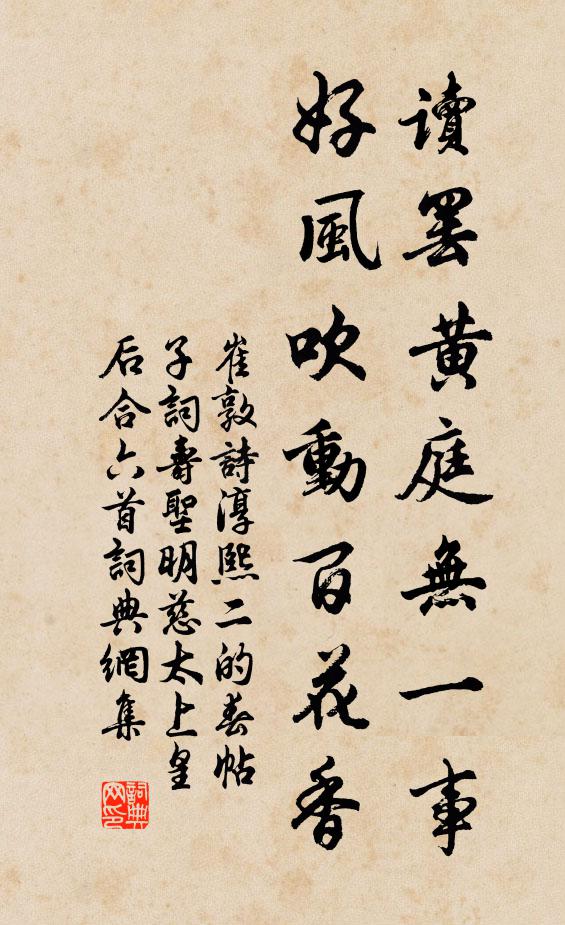 讀罷黃庭無一事
好風吹動百花香
崔敦詩淳熙二的春帖
子詞壽聖明慈太上皇
后合六首詞典網集
詞典网印